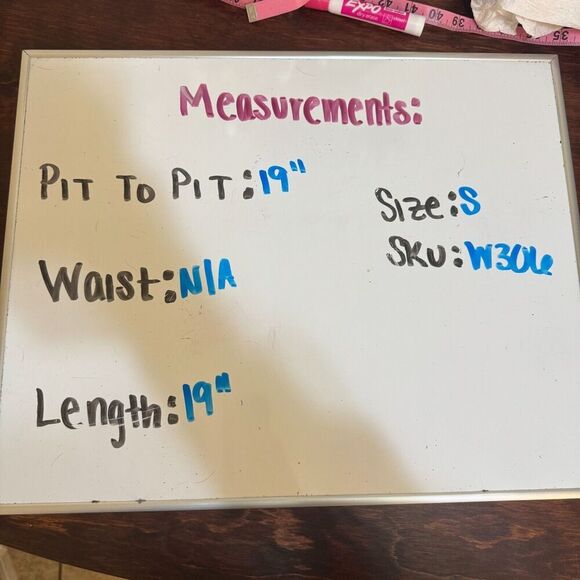 EXPO
dry erase
42 41 40 39
35
Measurements:
PIT TO PIT:19"
Size:S
Waist:N/A
SKU:W306
Length:19"